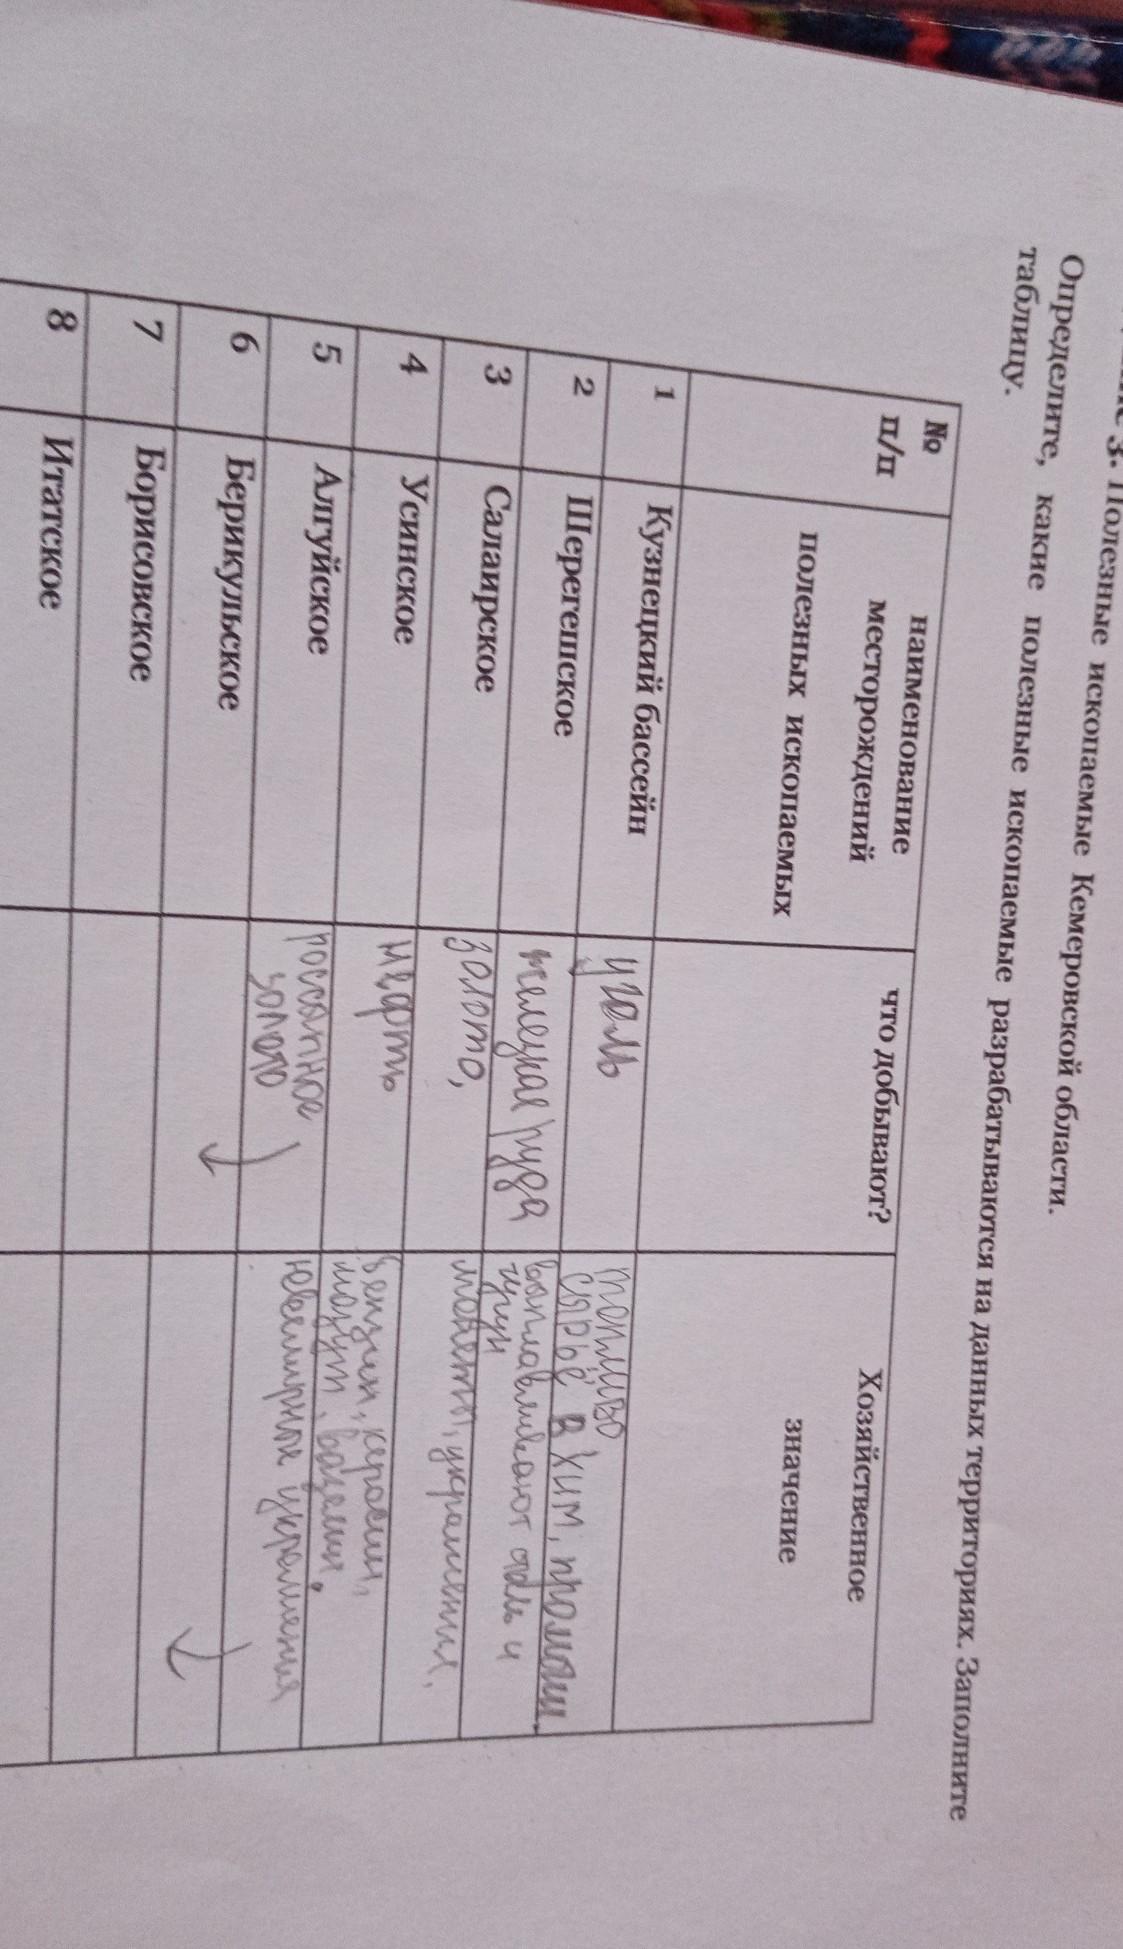 3. Полезные ископаемые Кемеровской области.
Определите, какие полезные ископаемые разрабатываются на данных территориях. Заполните
таблицу.
№
п/п
наименование
месторождений
полезных ископаемых
что добывают?
Хозяйственное
значение
1
Кузнецкий бассейн
уголь
топливо
сырьё в хим, промыш.
2
Шерегешское
железная руда
выплавливают сталь и
чугун
3
Салаирское
золото,
монеты, украшения,
4
Усинское
нефть
бензин, керосин,
мазут, вазелин,
5
Алгуйское
россыпное
золото
ювелирное украшения
6
Берикульское
7
Борисовское
8
Итатское